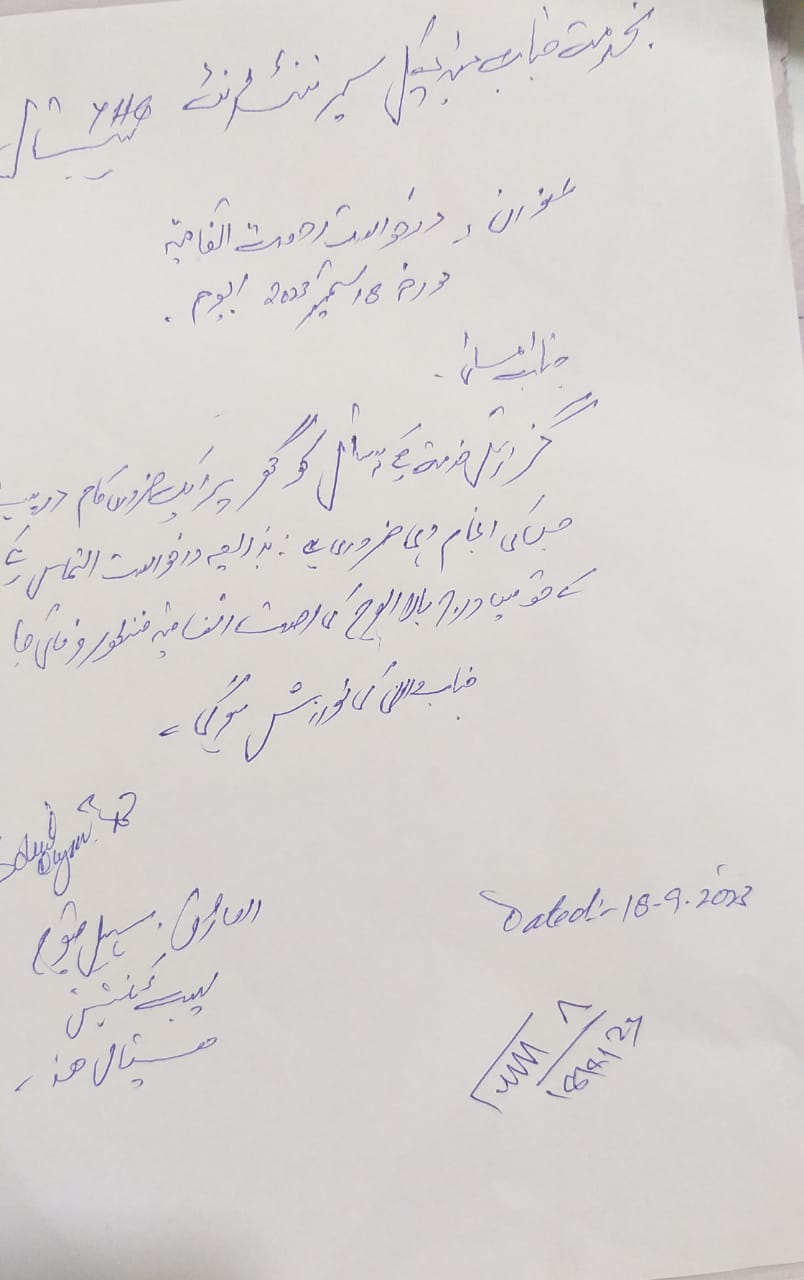 بخدمت جناب میڈیکل سپرنٹنڈنٹ THQ ہسپتال
عنوان: درخواست رخصت اتفاقیہ
مورخہ 18 ستمبر 2023 ایوم۔
جناب عالی۔
گزارش خدمت ہے کہ سائل کو گھر پر ایک ضروری کام درپیش
جس کی انجام دہی ضروری ہے۔ بذریعہ درخواست التماس ہے
کے حق میں درج بالا ایوم کی رخصت اتفاقیہ منظور فرمائی جا
جناب والا کی نوازش ہوگی۔
العارض: سہیل قیوم
لیب ٹیکنیشن
ہسپتال ھذا۔
Dated:- 18-9-2023